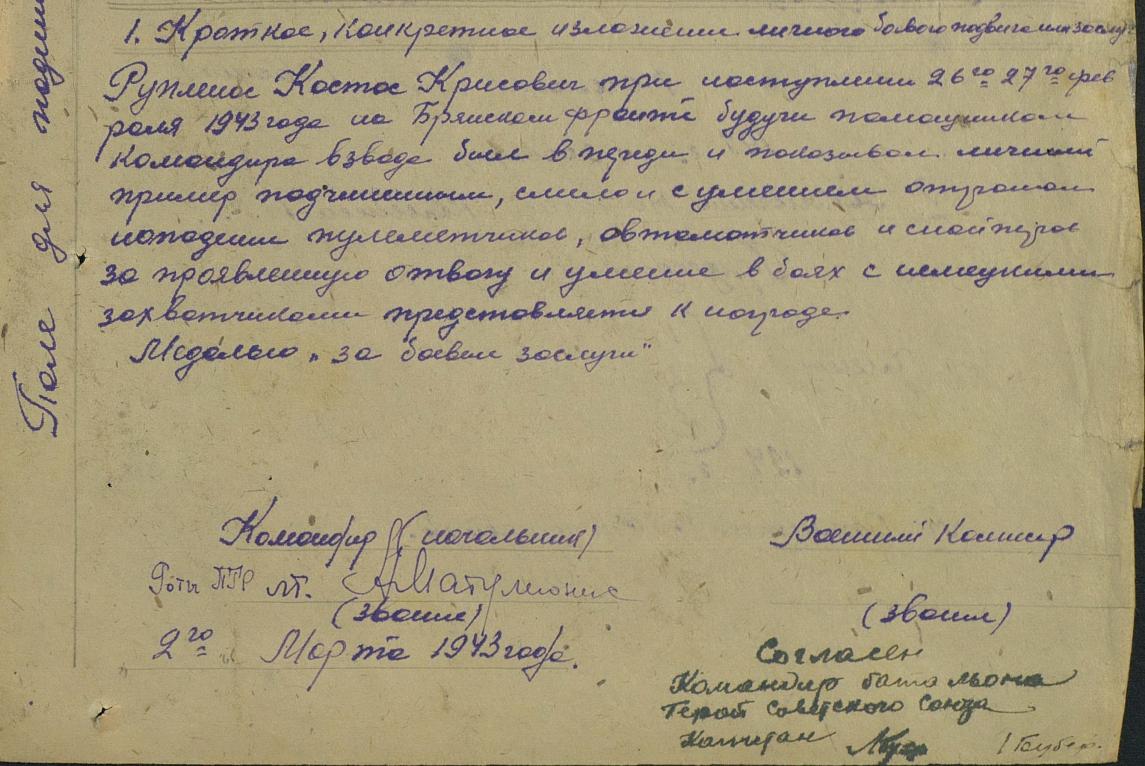 1. Краткое, конкретное изложении личного боевого подвига или заслуг
Руплемос Костос Крисович при наступлении 26го 27го фев
раля 1943 года на Брянском фронте будучи помощником
командира взвода был в переди и показывал личний
пример подчиненным, смело и с умением отражал
нападении пулеметчиков, автоматчиков и снайперов
за проявленную отвагу и умение в боях с немецкими
захватчиками представляется к награде.
Медалью „за боевые заслуги"
Командир (начальник)
Роты ПТР лт. Матулионис
(звание)
2го Марта 1943 года.
Военный Комиссар
(звание)
Согласен
Командир батальона
Герой Советского Союза
Капитан
Поле для подши